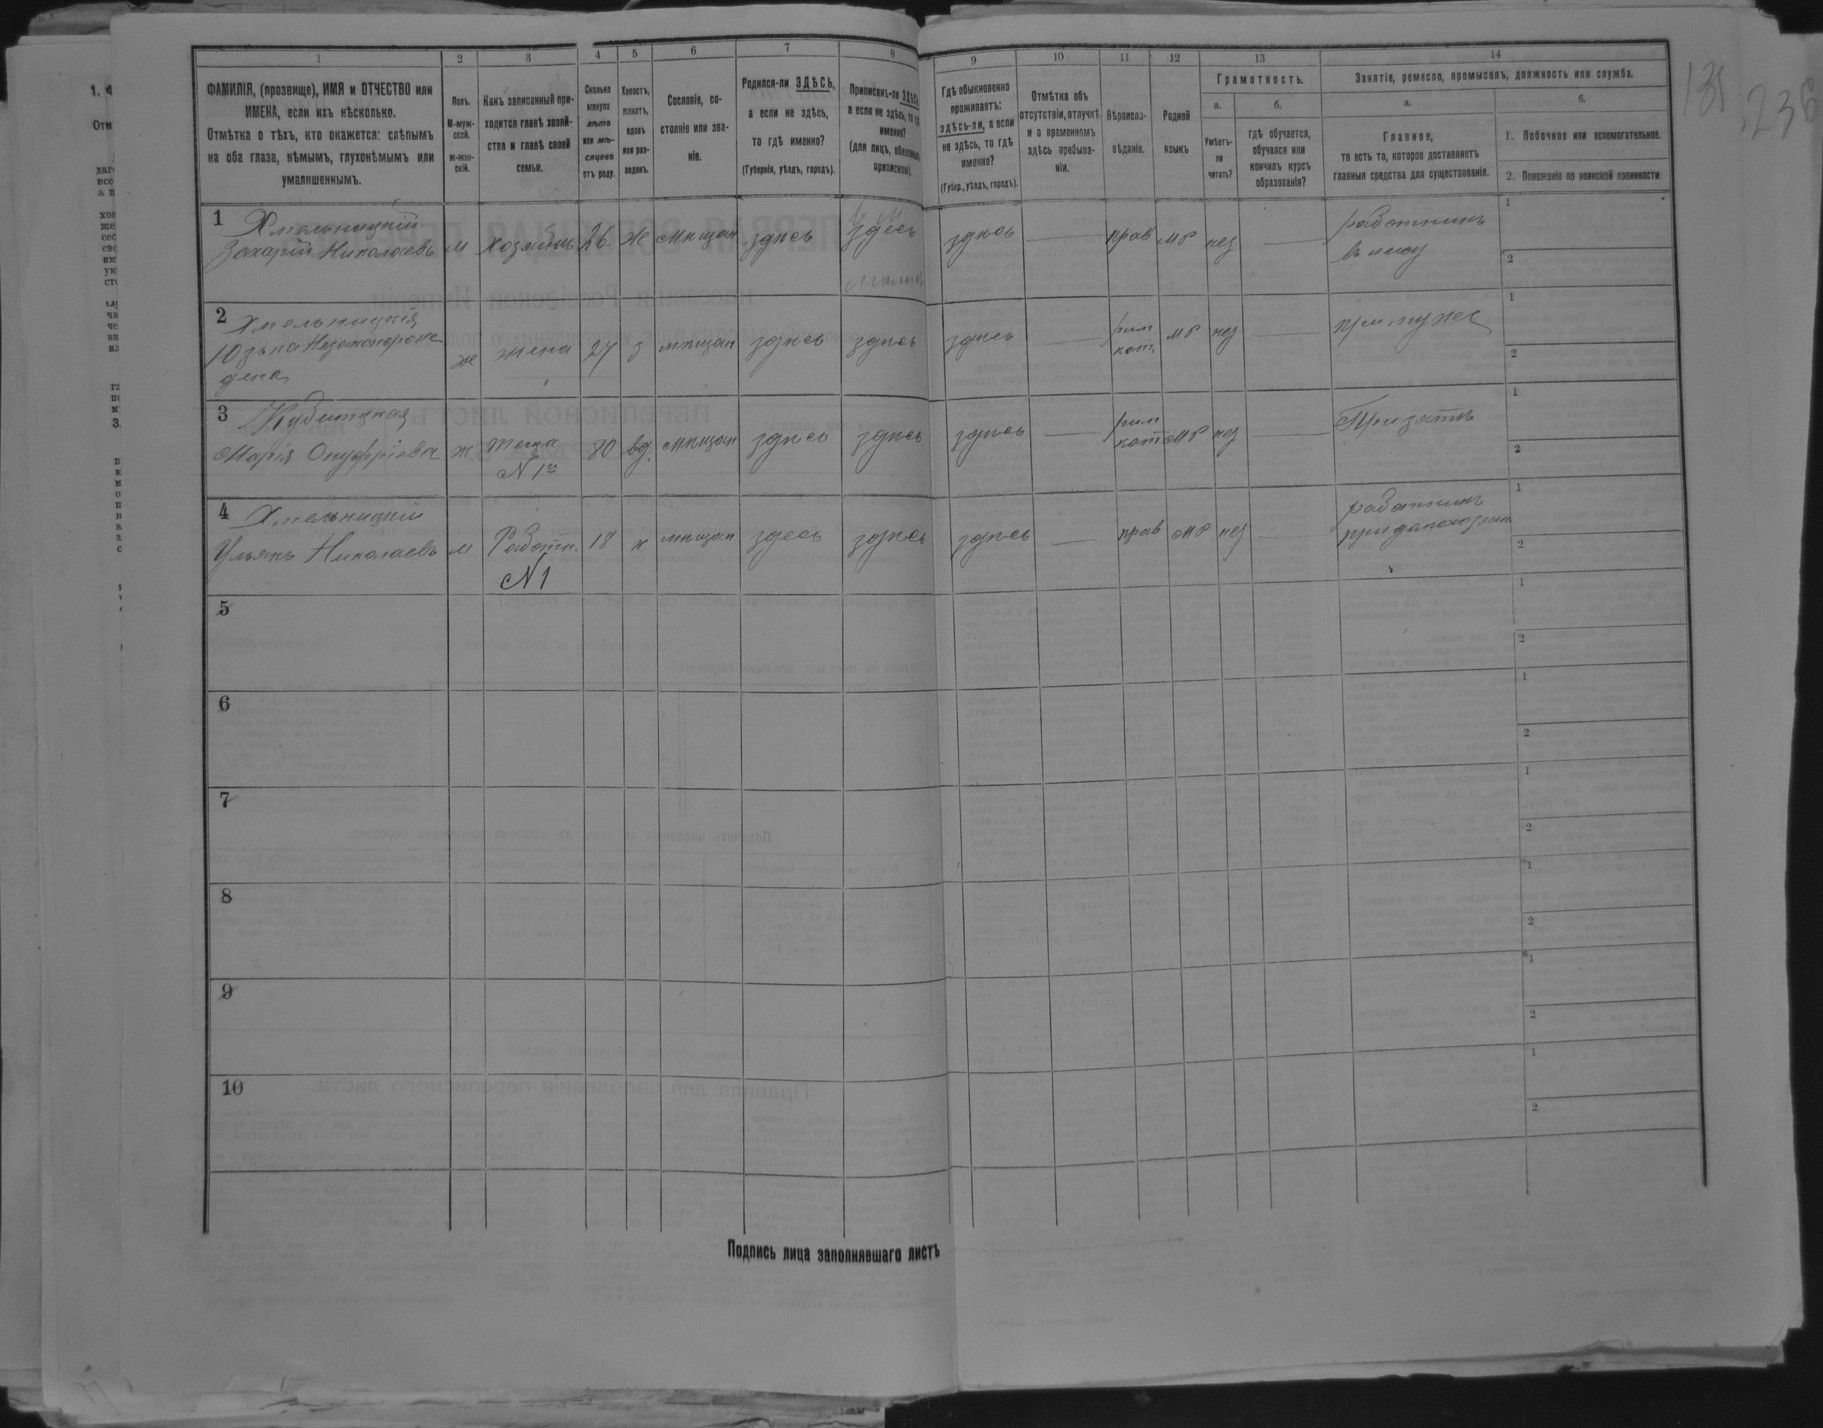 1 2 3 4 5 6 7 8 9 10 11 12 13 14
ФАМИЛІЯ, (прозвище), ИМЯ и ОТЧЕСТВО или
ИМЕНА, если ихъ нѣсколько.
Отмѣтка о тѣхъ, кто окажется: слѣпымъ
на оба глаза, нѣмымъ, глухонѣмымъ или
умалишеннымъ.
Полъ.
М-муж-
ской.
Ж-жен-
скій.
Какъ записанный при-
ходится главѣ хозяй-
ства и главѣ своей
семьи.
Сколько
минуло
лѣтъ
или мѣ-
сяцевъ
отъ роду.
Холостъ,
женатъ,
вдовъ
или раз-
веденъ.
Сословіе, со-
стояніе или зва-
ніе.
Родился-ли ЗДѢСЬ,
а если не здѣсь,
то гдѣ именно?
(Губернія, уѣздъ, городъ).
Приписанъ-ли ЗДѢСЬ,
а если не здѣсь, то гдѣ
именно?
(для лицъ, обязанныхъ
припискою).
Гдѣ обыкновенно
проживаетъ:
здѣсь-ли, а если
не здѣсь, то гдѣ
именно?
(Губер., уѣздъ, городъ).
Отмѣтка объ
отсутствіи, отлучкѣ
и о временномъ
здѣсь пребыва-
ніи.
Вѣроиспо-
вѣданіе.
Родной
языкъ
Грамотность.
а.
Умѣетъ-
ли
читать?
б.
гдѣ обучается,
обучался или
кончилъ курсъ
образованія?
Занятіе, ремесло, промыселъ, должность или служба.
а.
Главное,
то есть то, которое доставляетъ
главныя средства для существованія.
б.
1. Побочное или вспомогательное.
2. Положеніе по воинской повинности
135 236
1 Хмельницкій
Захарій Николаевъ м хозяинъ 26 ж мѣщан здѣсь здѣсь здѣсь — прав мр нез — работникъ
1
2
2 Хмельницкія
Юзьпа ж жена 27 з мѣщан здѣсь здѣсь здѣсь — рим кат. мр нез — при мужѣ
1
2
3
Марія Онуфріева ж теща 80 вд. мѣщан здѣсь здѣсь здѣсь — рим кат мр нез —
N 1го
1
2
4 Хмельницкій
Ульянъ Николаевъ м Работн. 18 х мѣщан здесь здѣсь здѣсь — прав мр нез — работникъ
N 1
1
2
5
1
2
6
1
2
7
1
2
8
1
2
9
1
2
10
1
2
Подпись лица заполнявшаго листъ